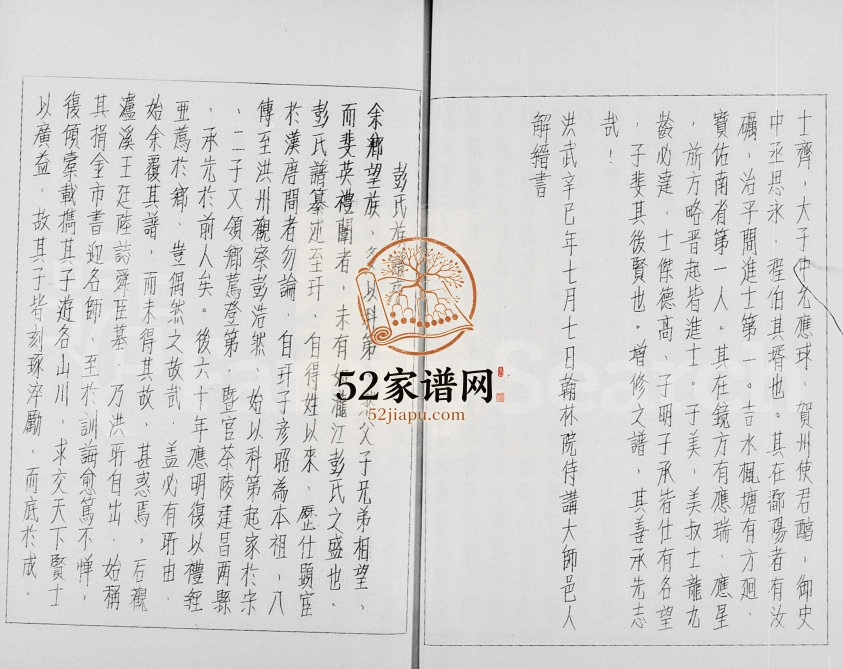 士齊，大子中允應球，賀州使君醕，御史
中丞思永，程伯其壻也。其在鄱陽者有汝
礪，治平間進士第一。吉水楓塘有方迴，
寶佑南省第一人。其在鏡方有應瑞，應星
，旂方略晋起皆進士。于美，美叔士龍九
齡必達，士傑德高，子明子承皆仕有名望
，子斐其後賢也。增修之譜，其善承先志
哉！
洪武辛巳年七月七日翰林院侍講大師邑人
解縉書
彭氏族譜
余鄉望族，多以科第 父子兄弟相望，
而斐英禮闈者，未有 瀘江彭氏之盛也。
彭氏譜纂述至玕，自得姓以來，歷仕顯宦
於漢唐間者勿論，自玕子彥昭為本祖，八
傳至洪州觀察彭浩然，始以科第起家於宋
，二子又領鄉薦登第，暨官茶陵建昌兩縣
，承先於前人矣。後六十年應明復以禮經
亜薦於鄉，豈偶然之故哉，盖必有所由，
始余覆其譜，而未得其故，甚惑焉，后觀
瀘溪王廷陞誌舜臣墓，乃洪所自出，始稱
其捐金市書迎名師，至於訓誨愈篤不憚，
復傾橐載携其子遊名山川，求交天下賢士
以廣益，故其子皆刻琢淬勵，而底於成。
52家谱网
52jiapu.com